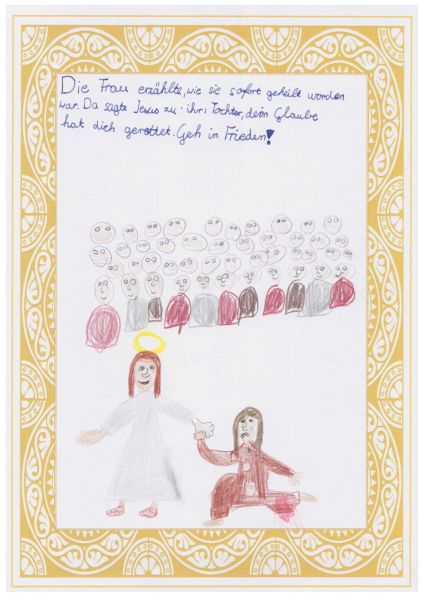 Die Frau erzählte, wie sie sofort geheilt worden
war. Da sagte Jesus zu ihr: Tochter, dein Glaube
hat dich gerettet. Geh in Frieden!